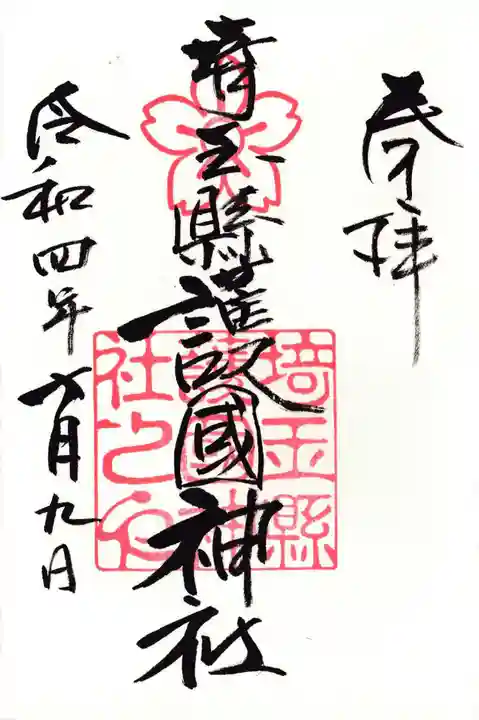 奉拝
埼玉縣護國神社
令和四年六月九日
埼玉縣
護國神
社之印